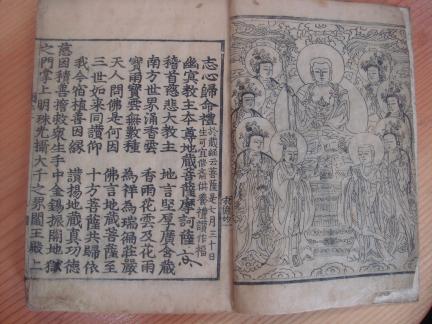 志心歸命禮 於藏經云菩薩是七月三十日
生可宜修齋供養禮讚作福
幽冥教主本尊地藏菩薩摩訶薩
稽首慈悲大教主 地言堅厚廣含藏
南方世界涌香雲 香雨花雲及花雨
寶雨寶雲無數種 為祥為瑞徧莊嚴
天人問佛是何因 佛言地藏菩薩至
三世如來同讚仰 十方菩薩共歸依
我今宿植善因緣 讚揚地藏真功德
慈因積善誓救衆生手中金錫振開地獄
之門掌上明珠光攝大千之界閻王殿上